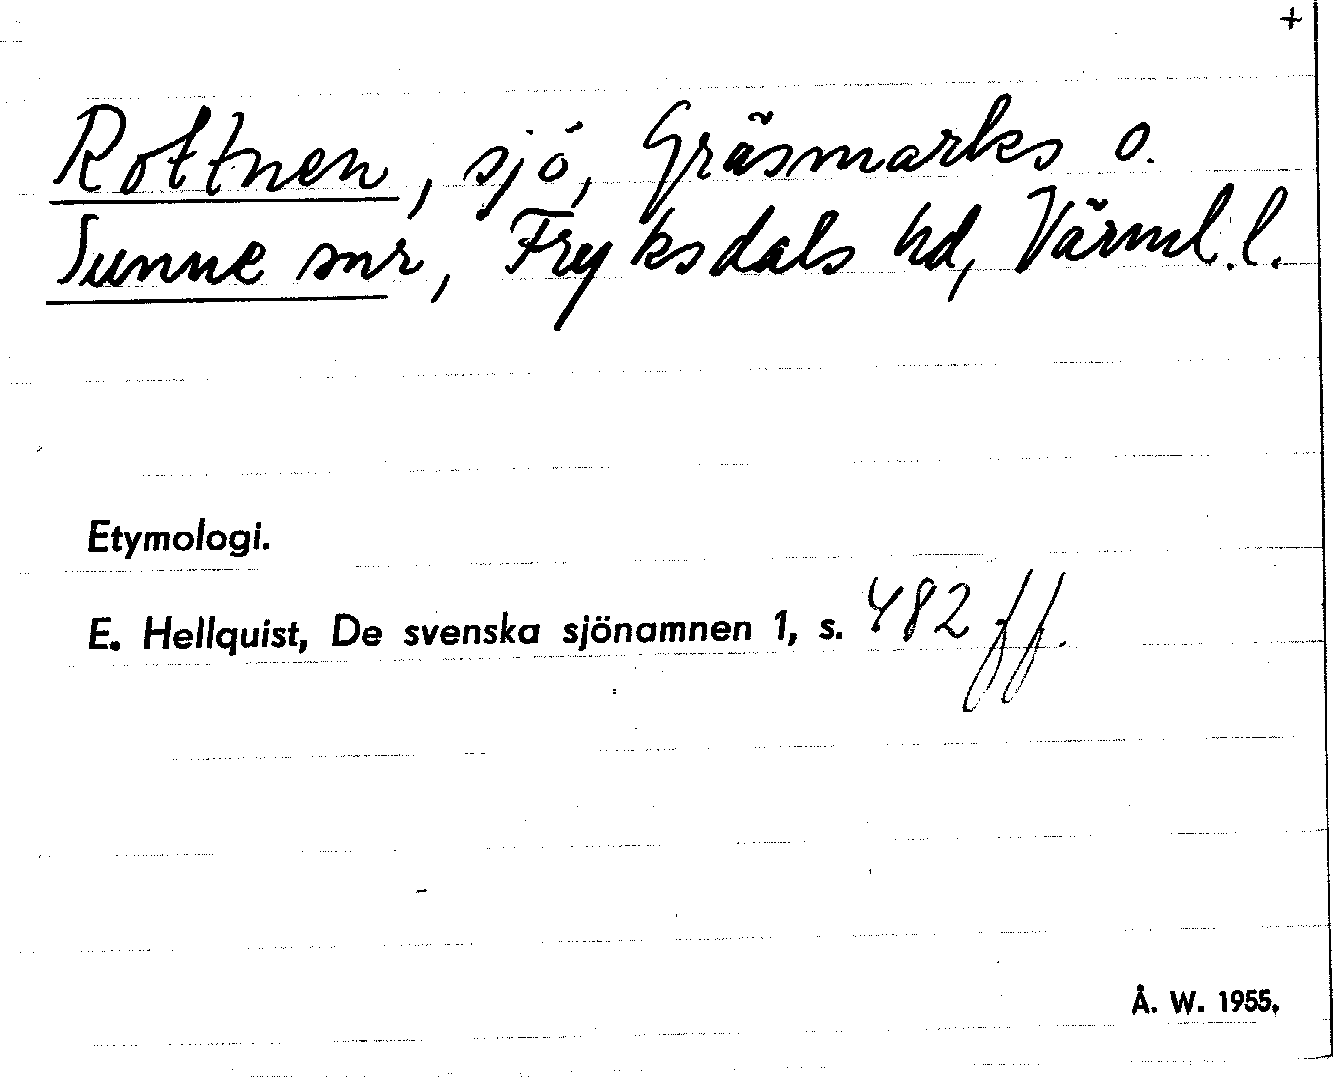 +
Rottnen, sjö, Gräsmarks o.
Sunne snr, Fryksdals hd, Värml. l.
Etymologi.
E. Hellquist, De svenska sjönamnen 1, s. 482 ff.
Å. W. 1955.